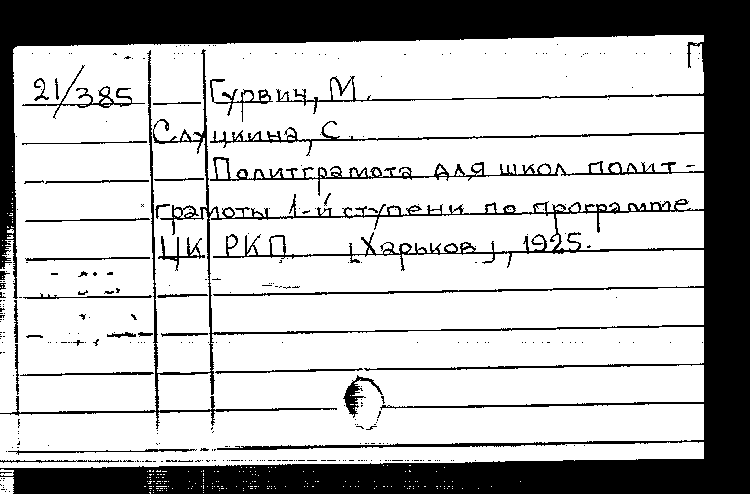 П
21/385 Гурвич, М.
Слуцкина, С.
Политграмота для школ полит-
грамоты 1-й ступени по программе
ЦК РКП [Харьков], 1925.